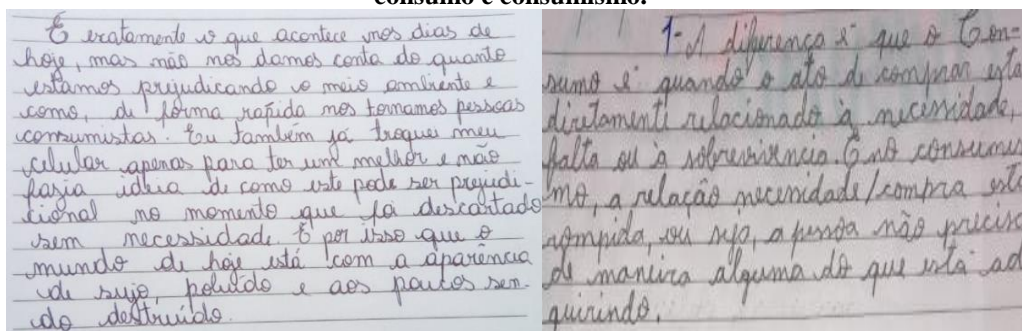 consumo e consumismo.
É exatamente o que acontece nos dias de
hoje, mas não nos damos conta do quanto
estamos prejudicando o meio ambiente e
como, de forma rapída nos tornamos pessoas
consumistas. Eu também já troquei meu
celular apenas para ter um melhor e não
fazia idéia de como isto pode ser prejudi-
cional no momento que foi descartado
sem necessidade. É por isso que o
mundo de hoje está com a aparência
de sujo, poluído e aos poucos sen-
do destruído.
1- A diferença é que o Con-
sumo é quando o ato de comprar está
diretamente relacionado à necessidade,
falta ou à sobrevivência. E no consumis
mo, a relação necessidade/compra está
rompida, ou seja, a pessoa não precisa
de maneira alguma do que está ad
quirindo.